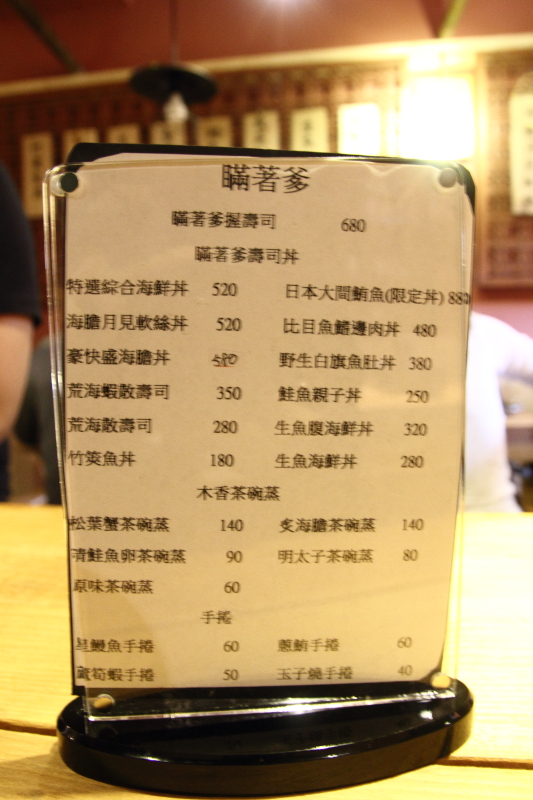 瞞著爹
瞞著爹握壽司 680
瞞著爹壽司丼
特選綜合海鮮丼 520 日本大間鮪魚(限定丼) 880
海膽月見軟絲丼 520 比目魚鰭邊肉丼 480
豪快盛海膽丼 野生白旗魚肚丼 380
荒海蝦散壽司 350 鮭魚親子丼 250
荒海散壽司 280 生魚腹海鮮丼 320
竹筴魚丼 180 生魚海鮮丼 280
木香茶碗蒸
松葉蟹茶碗蒸 140 炙海膽茶碗蒸 140
清鮭魚卵茶碗蒸 90 明太子茶碗蒸 80
原味茶碗蒸 60
手捲
星鰻魚手捲 60 蔥鮪手捲 60
蘆筍蝦手捲 50 玉子燒手捲 40